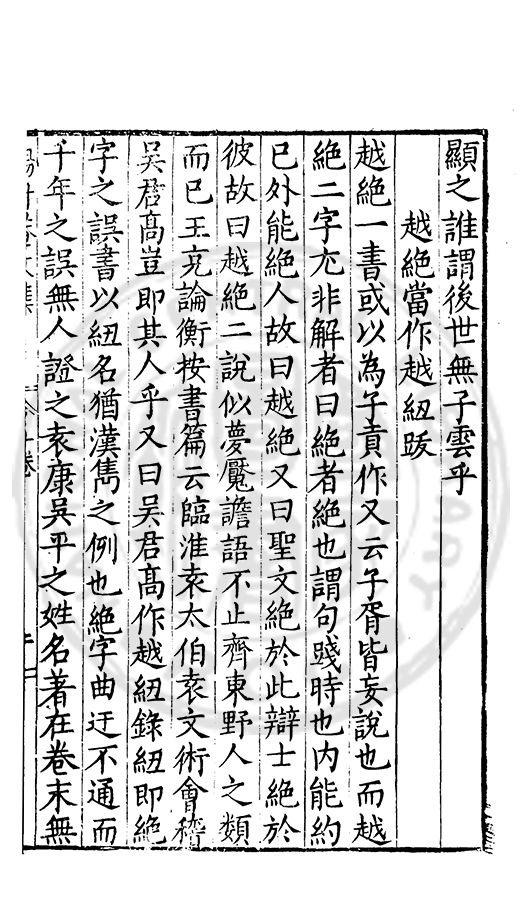 顯之誰謂後世無子雲乎
越絶當作越紐跋
越絶一書或以為子貢作又云子胥皆妄說也而越
絶二字尤非解者曰絶者絶也謂句踐時也内能約
已外能絶人故曰越絶又曰聖文絶於此辯士絶於
彼故曰越絶二說似夢魘譫語不止齊東野人之類
而已王充論衡按書篇云臨淮袁太伯袁文術會稽
吳君高豈即其人乎又曰吳君高作越紐錄紐即絶
字之誤書以紐名猶漢雋之例也絶字曲迂不通而
千年之誤無人證之袁康吳平之姓名著在卷末無